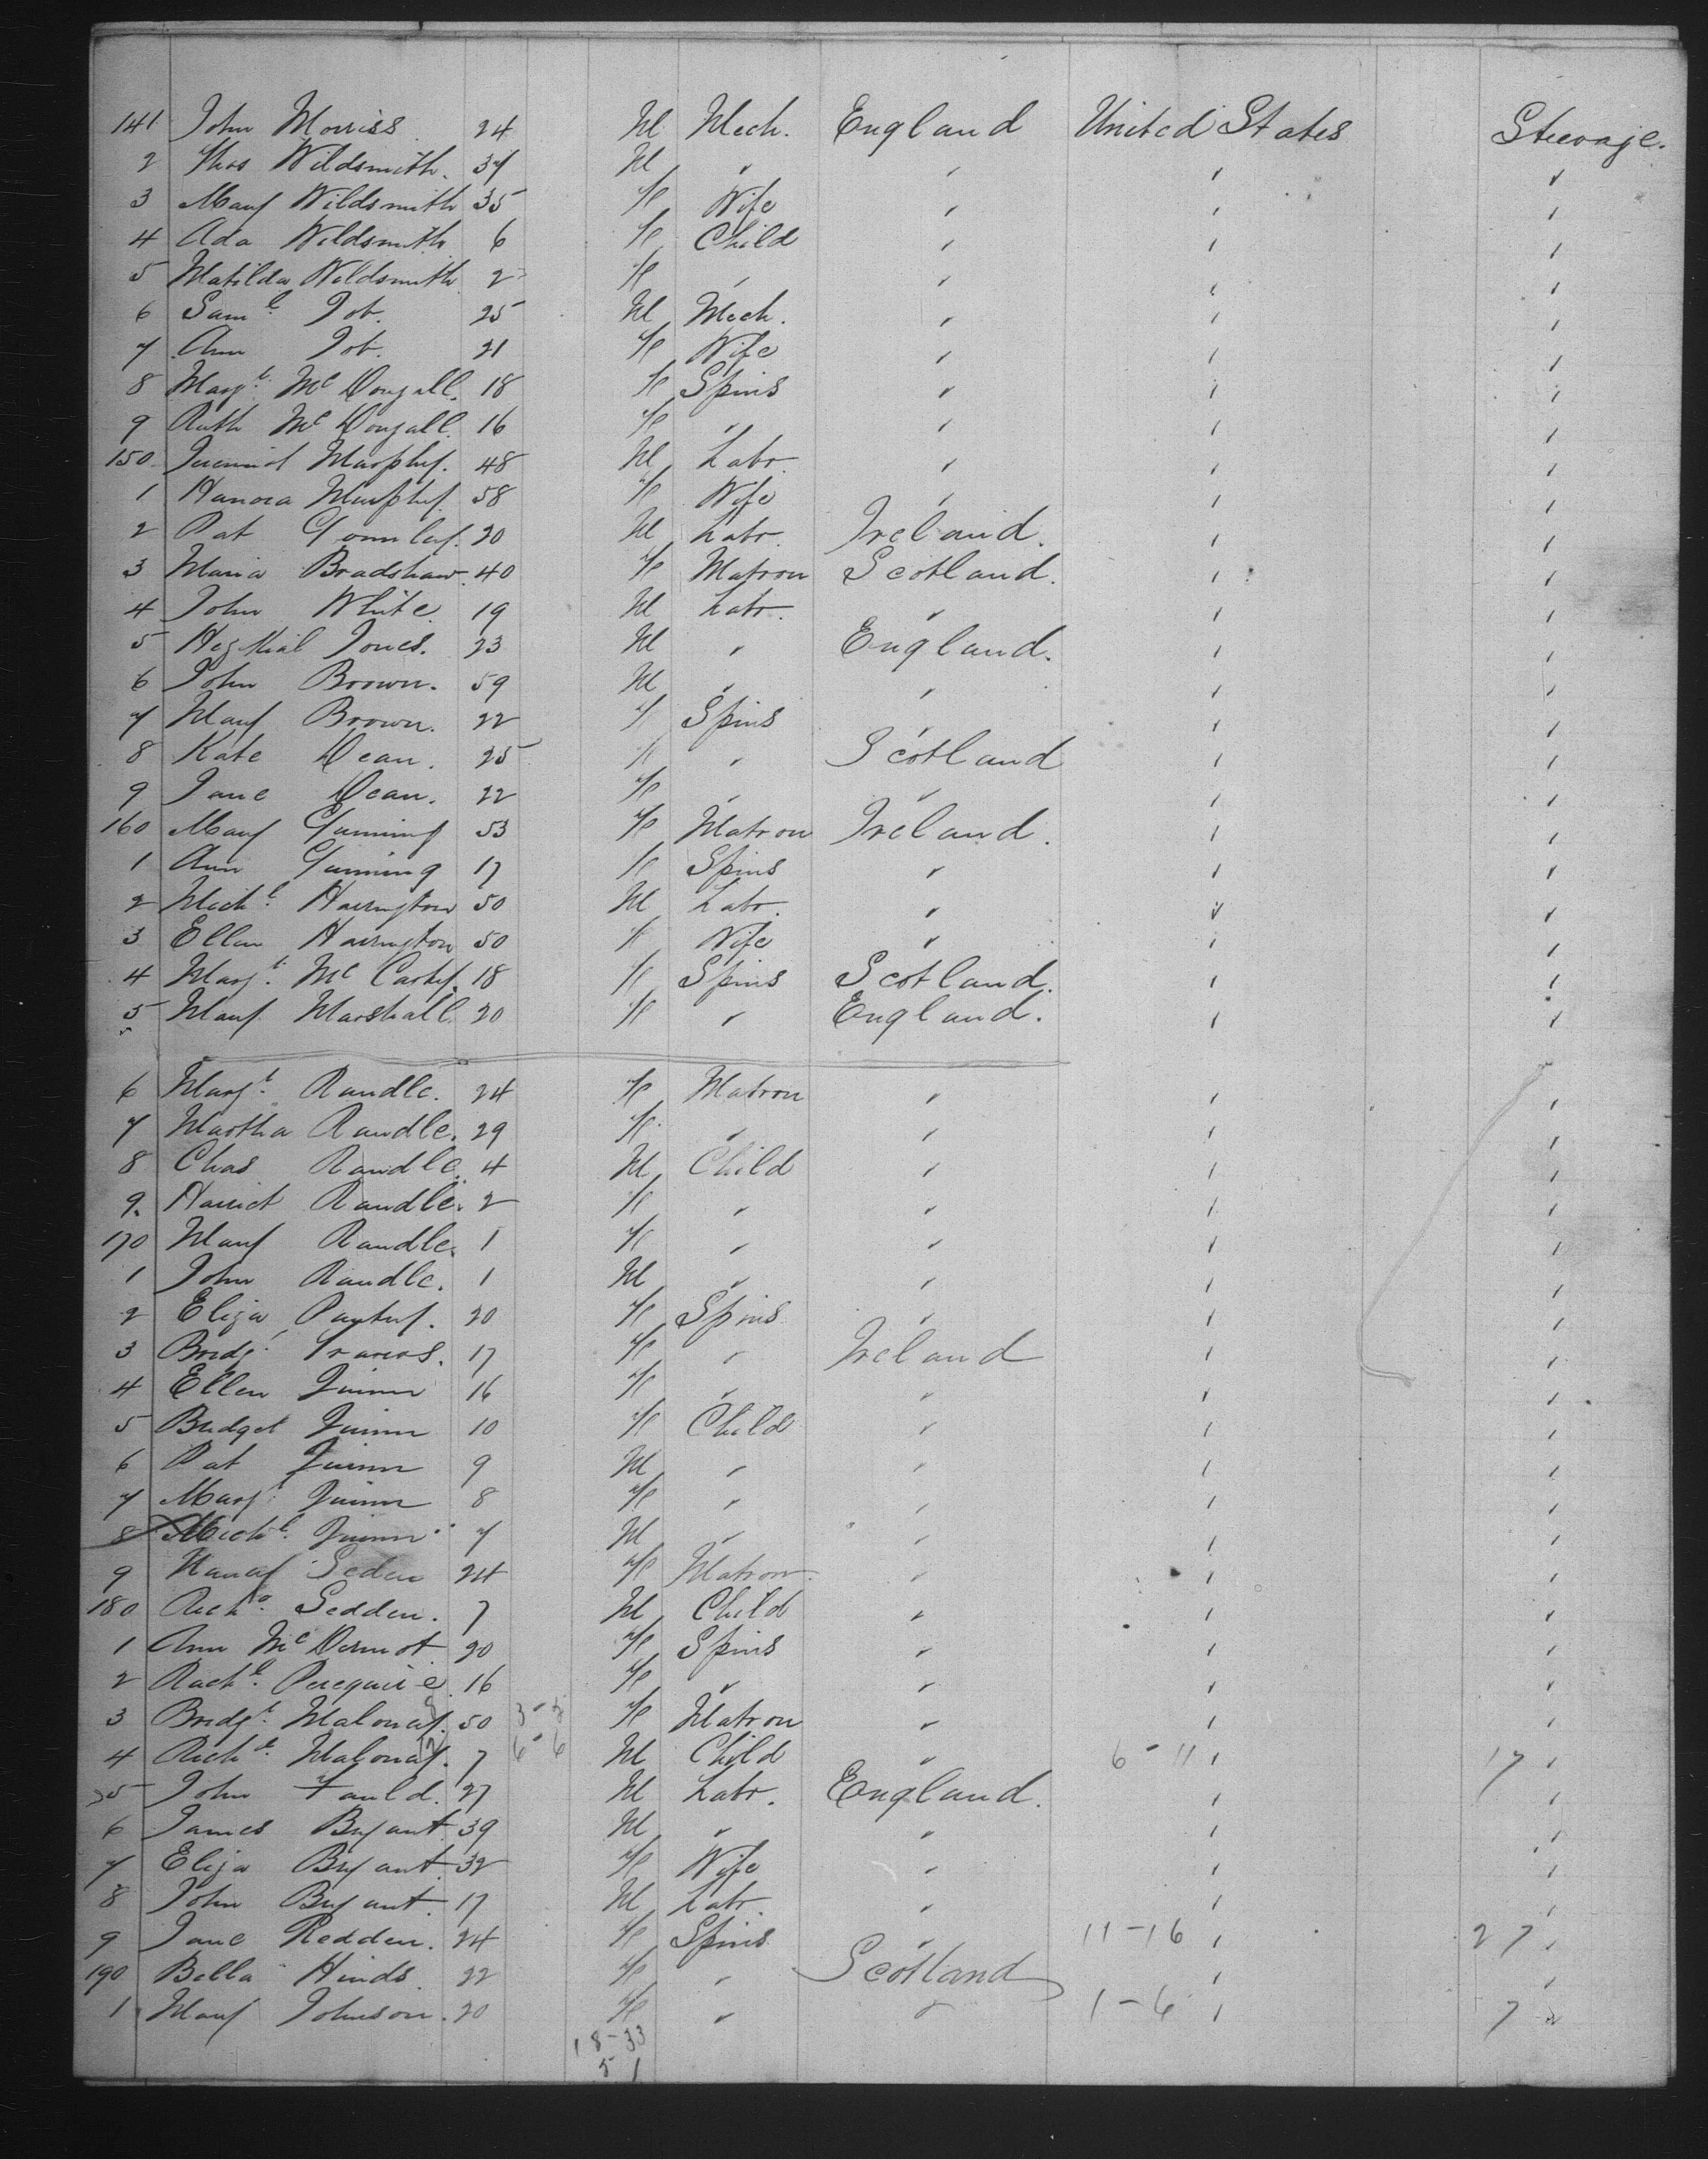 141 John Morriss 24 M Mech. England United States Steerage.
2 Thos Wildsmith. 37 M " " " "
3 Mary Wildsmith 35 F Wife " " "
4 Ada Wildsmith 6 F Child " " "
5 Matilda Wildsmith 2 F " " " "
6 Saml. Job. 25 M Mech. " " "
7 Ann Job. 21 F Wife " " "
8 Margt. Mc Dougall. 18 F Spins " " "
9 Ruth Mc Dougall. 16 F " " " "
150 Jeremiah Murphy. 48 M Labr. " " "
1 Hanora Murphy. 58 F Wife " " "
2 Pat 20 M Labr. Ireland. " "
3 Maria Bradshaw. 40 F Matron Scotland. " "
4 John White. 19 M Labr. " " "
5 Hezkial Jones. 23 M " England. " "
6 John Brown. 59 M " " " "
7 Mary Brown. 22 F Spins " " "
8 Kate Dean. 25 F " Scotland " "
9 Jane Dean. 22 F " " " "
160 Mary Gunning 53 F Matron Ireland. " "
1 Ann Gunning 17 F Spins " " "
2 Michl. Harrington 50 M Labr. " " "
3 Ellen Harrington 50 F Wife " " "
4 Margt. Mc Carthy. 18 F Spins Scotland. " "
5 Mary Marshall. 20 F " England. " "
6 Margt. Randle. 24 F Matron " " "
7 Martha Randle. 29 F " " " "
8 Chas Randle. 4 M Child " " "
9. Harriet Randle. 2 F " " " "
170 Mary Randle. 1 F " " " "
1 John Randle. 1 M " " " "
2 Eliza 20 F Spins " " "
3 Bridgt. Travers. 17 F " Ireland " "
4 Ellen Quinn 16 F " " " "
5 Bridget Quinn 10 F Child " " "
6 Pat Quinn 9 M " " " "
7 Margt. Quinn 8 F " " " "
8 Michl. Quinn 7 M " " " "
9 Seden 24 F Matron " " "
180 Richd. Sedden. 7 M Child " " "
1 Ann Mc Dermot. 20 F Spins " " "
2 Rachl. 16 F " " " "
3 Bridgt. Maloney. 50 3-5 F Matron " " "
4 Richd. Maloney. 7 6-6 M Child " 6-11 " 17 "
5 John Fauld. 27 M Labr. England. " "
6 James Bryant. 39 M " " " "
7 Eliza Bryant. 32 F Wife " " "
8 John Bryant. 17 M Labr. " " "
9 Jane Redden. 24 F Spins " 11-16 " 27 "
190 Bella Hinds. 22 F " Scotland " "
1 Mary Johnson. 20 F " " 1-6 " 7 "
18-33
51